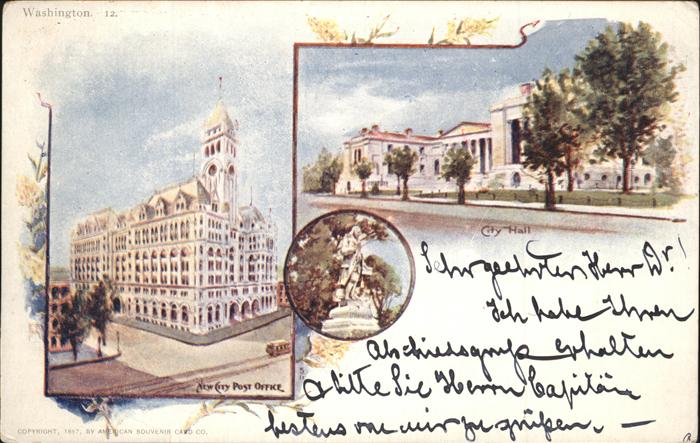 Washington. 12.
City Hall
New City Post Office
Sehr geehrter Herr Dr.!
Ich habe Ihren
Abschiedsgruß erhalten
bitte Sie Herrn Capitän
bestens von mir zu grüßen. —
COPYRIGHT, 1897, BY AMERICAN SOUVENIR CARD CO.